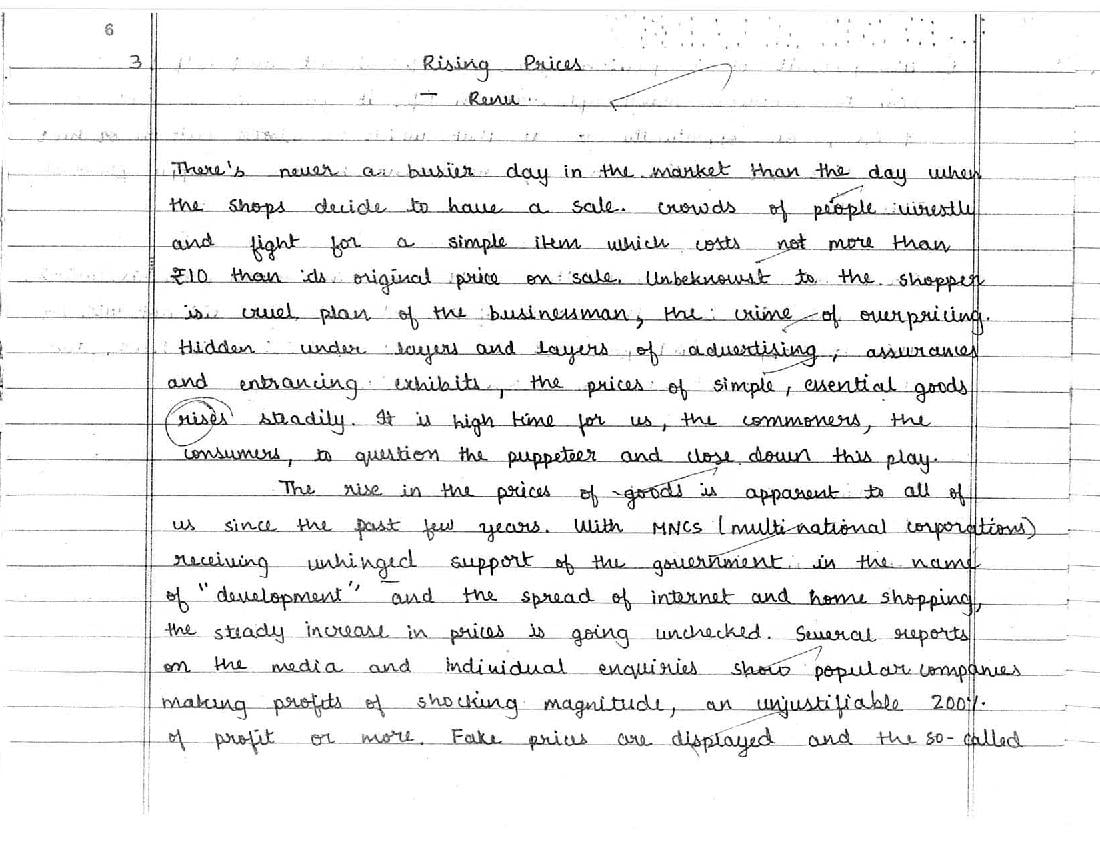 6
3 Rising Prices
- Renu
There's never a busier day in the market than the day when
the shops decide to have a sale. Crowds of people wrestly
and fight for a simple item which costs not more than
₹10 than its original price on sale. Unbeknowst to the shopper
is cruel plan of the businessman, the crime of overpricing.
Hidden under layers and layers of advertising, assurances
and entrancing exhibits, the prices of simple, essential goods
rises steadily. It is high time for us, the commoners, the
consumers, to question the puppeteer and close down this play.
The rise in the prices of goods is apparent to all of
us since the past few years. With MNCs (multi-national corporations)
receiving unhinged support of the government in the name
of "development" and the spread of internet and home shopping,
the steady increase in prices is going unchecked. Several reports
on the media and individual enquiries show popular companies
making profits of shocking magnitude, an unjustifiable 200%
of profit or more. Fake prices are displayed and the so-called